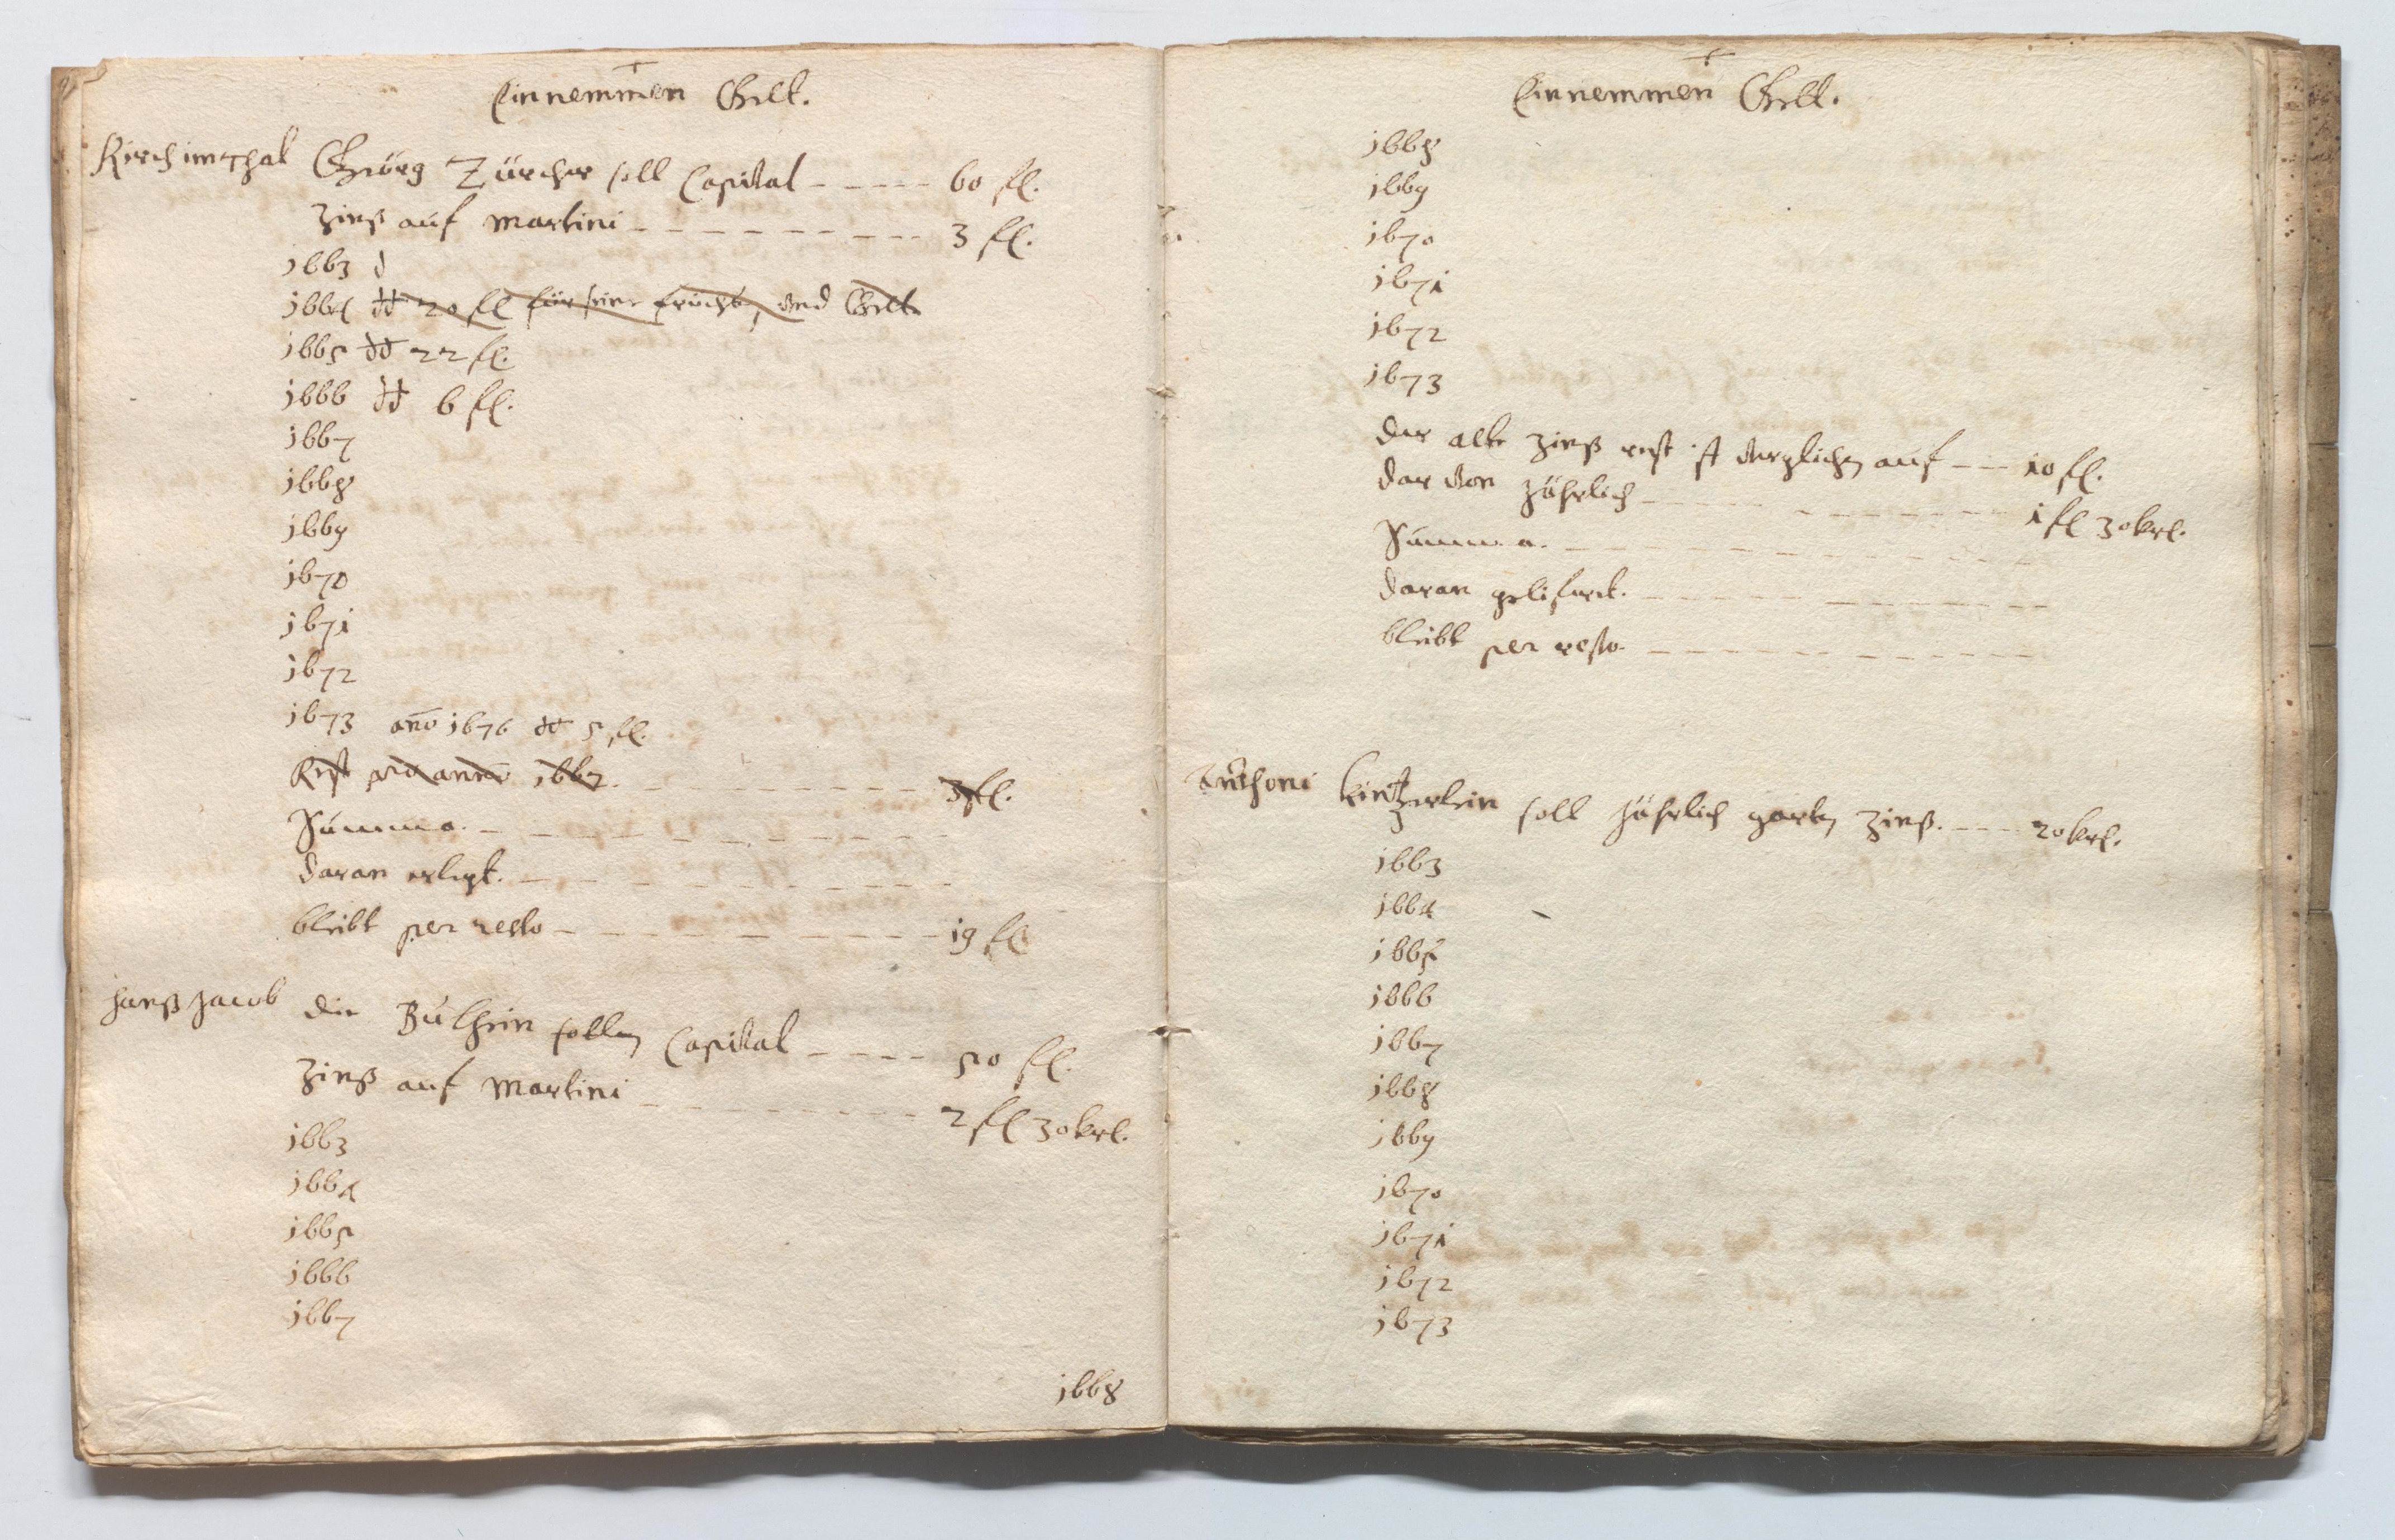 Einnemmen Gelt.
Kirch im Thal Geörg Zürcher soll Capital - - - - - 60 fl.
Zinß auf Martini - - - - - - - - - 3 fl.
1663 d
1664 dt 20 fl für seine früchte, und Gelt
1665 dt 22 fl.
1666 dt 6 fl.
1667
1668
1669
1670
1671
1672
1673 año 1676 dt 5 fl.
Rest pro anno 1662. - - - - - - - - 3 fl.
Summa. - - - - - - - - -
daran erlegt. - - - - - - - - -
bleibt per resto - - - - - - - - - 19 fl
Hanß Jacob die sollen Capital - - - - 50 fl.
Zinß auf Martini - - - - - - - - 2 fl 30 krl.
1663
1664
1665
1666
1667
1668
Einnemmen Gelt.
1668
1669
1670
1671
1672
1673
der alte Zinß rest ist verglichen auf - - 10 fl.
dar von Jährlich - - - - - - - - 1 fl 30 krl.
Summa. - - - - - - - - -
daran gelifert. - - - - - - - - -
bleibt per resto - - - - - - - - -
Anthoni soll Jährlich garten Zinß. - - - - 20 krl.
1663
1664
1665
1666
1667
1668
1669
1670
1671
1672
1673